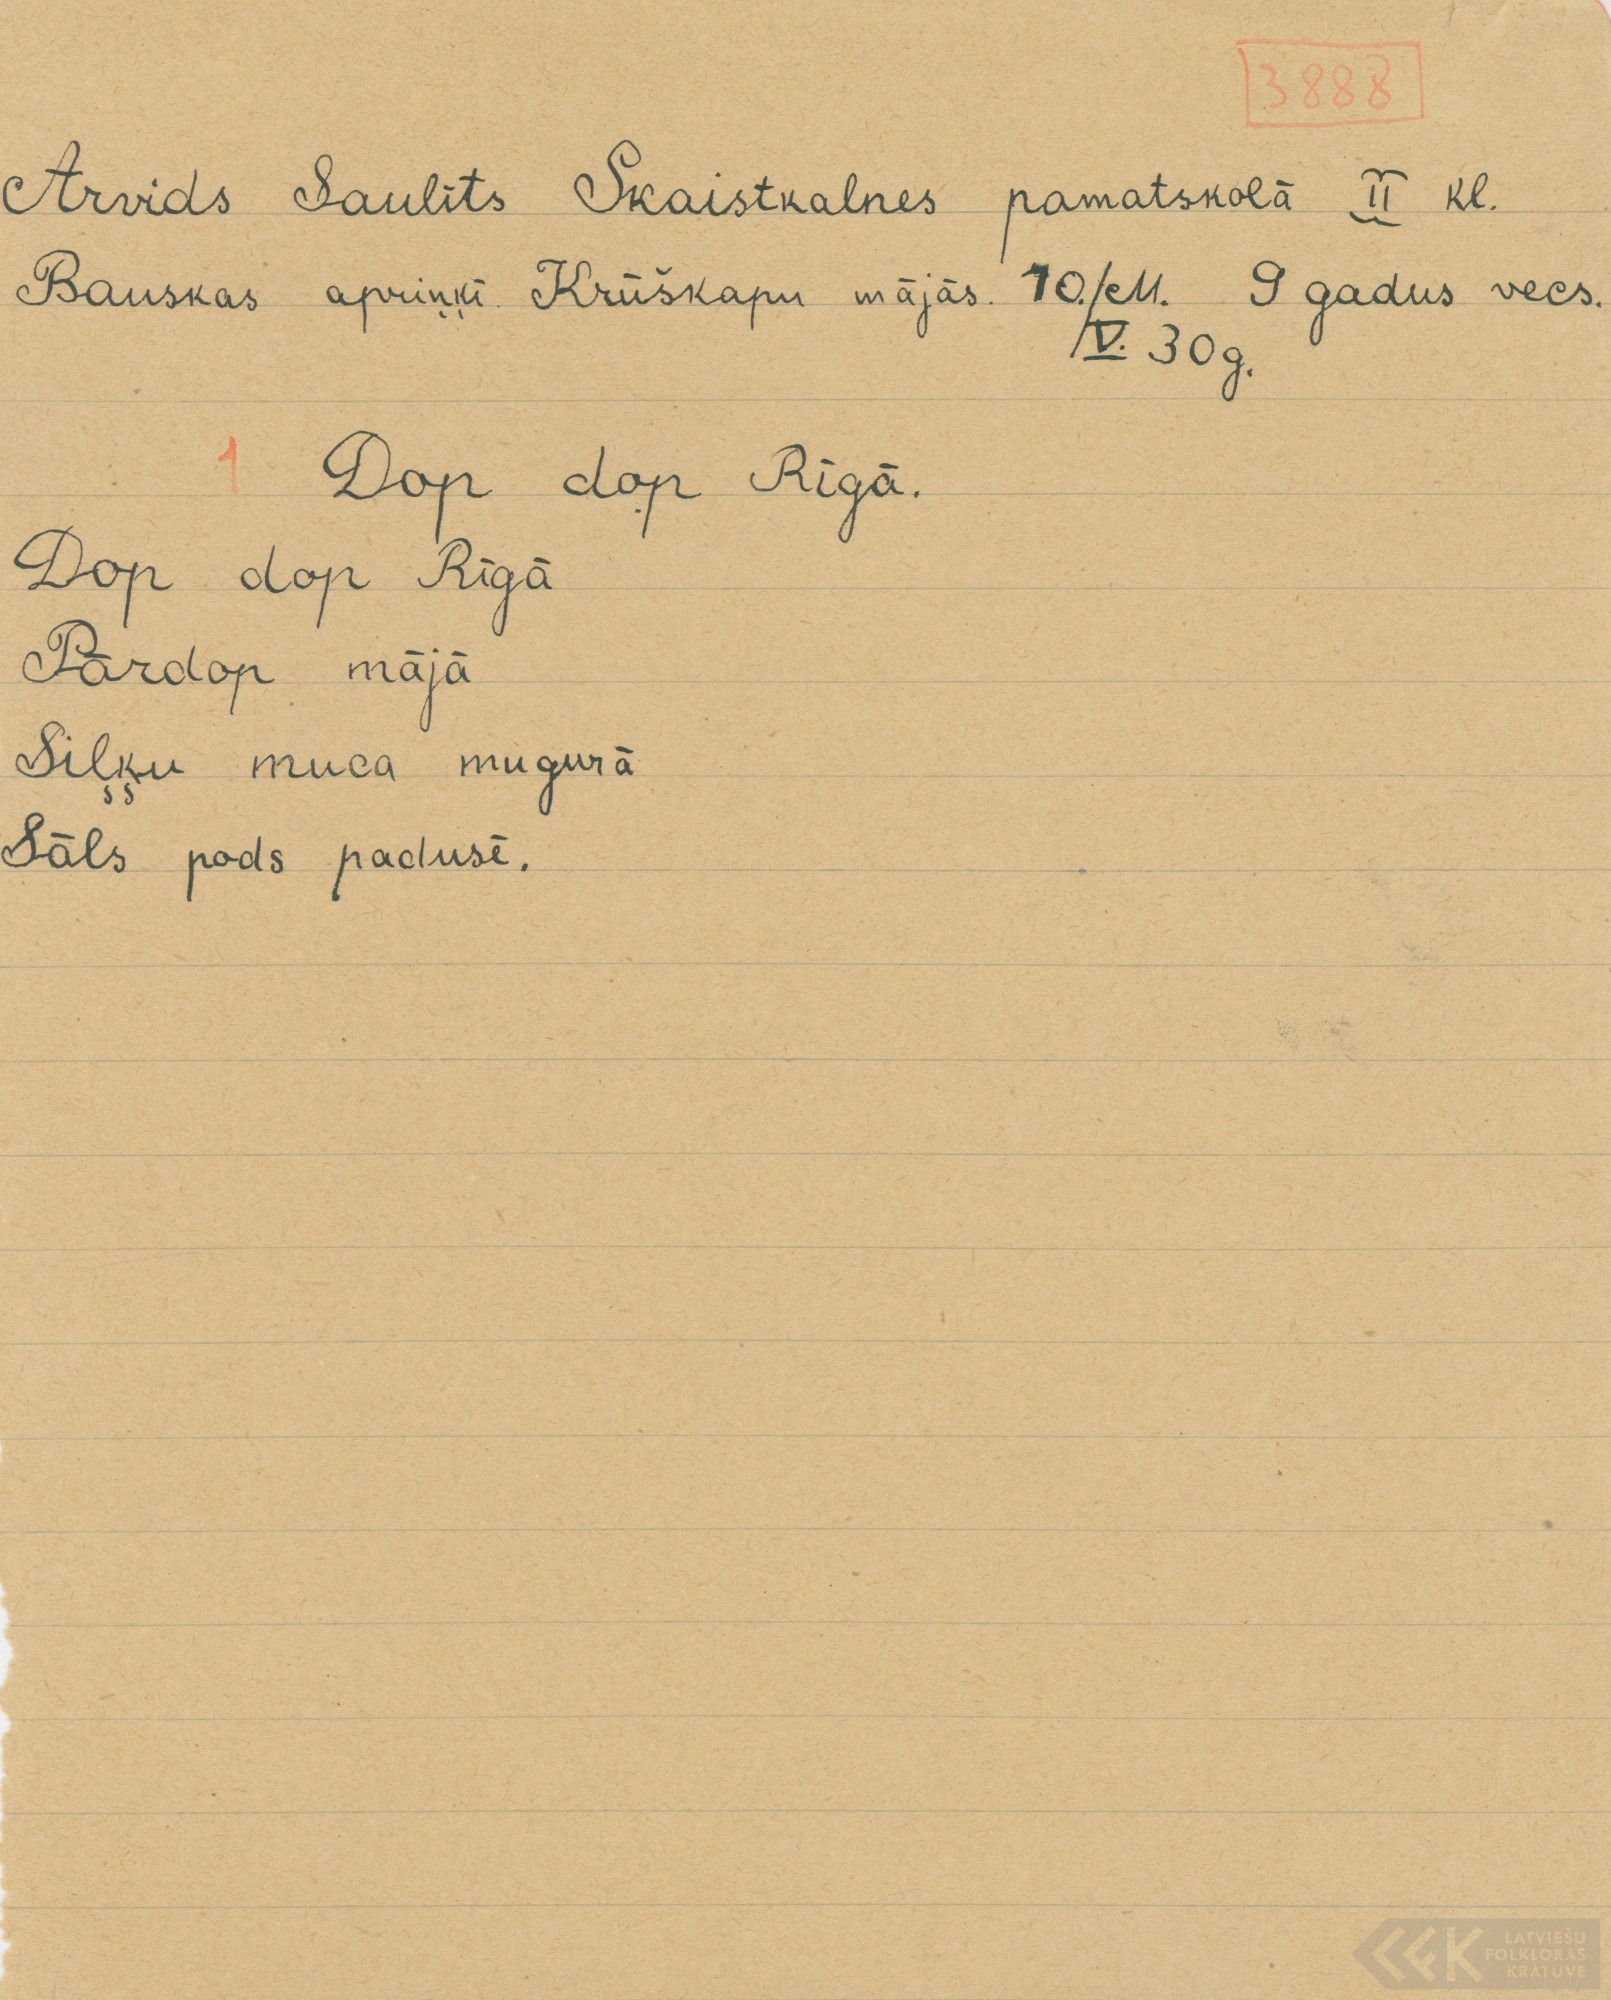 3888
Arvids Saulīts Skaistkalnes pamatskolā II kl.
Bauskas apriņķī Krūškapu mājās. 10./M. 9 gadus vecs.
/V. 30g.
1 Dop dop Rīgā.
Dop dop Rīgā
Pārdop mājā
Siļķu muca mugurā
Sāls pods padusē.
LATVIEŠU
FOLKLORAS
KRĀTUVE